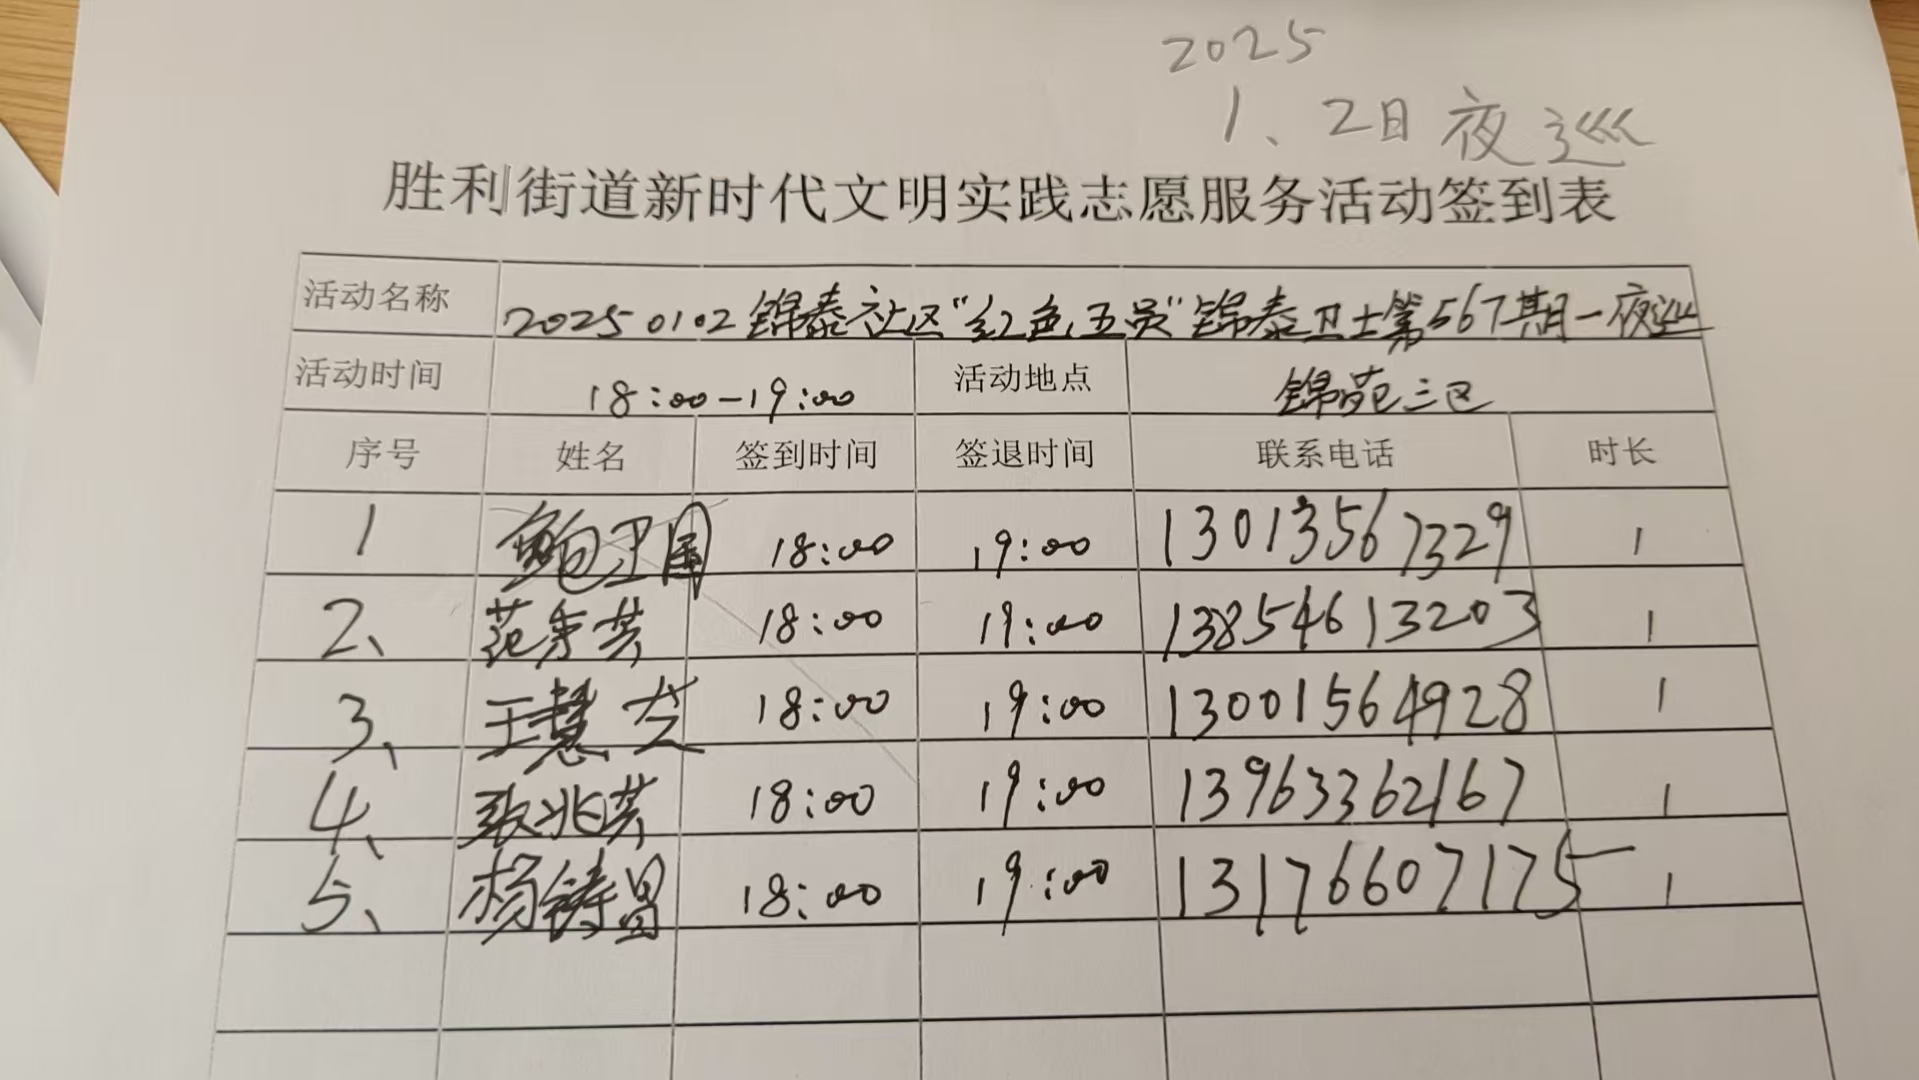 2025
1、2日夜巡
胜利街道新时代文明实践志愿服务活动签到表
活动名称 20250102锦泰社区"红色五员"锦泰卫士第567期一夜巡
活动时间 18:00-19:00 活动地点 锦苑三区
序号 姓名 签到时间 签退时间 联系电话 时长
1 鲍卫国 18:00 19:00 13013567329 1
2、 范 芸 18:00 19:00 13854613203 1
3、 王慧芝 18:00 19:00 13001564928 1
4、 张兆芸 18:00 19:00 13963362167 1
5、 杨铸昌 18:00 19:00 13176607175 1